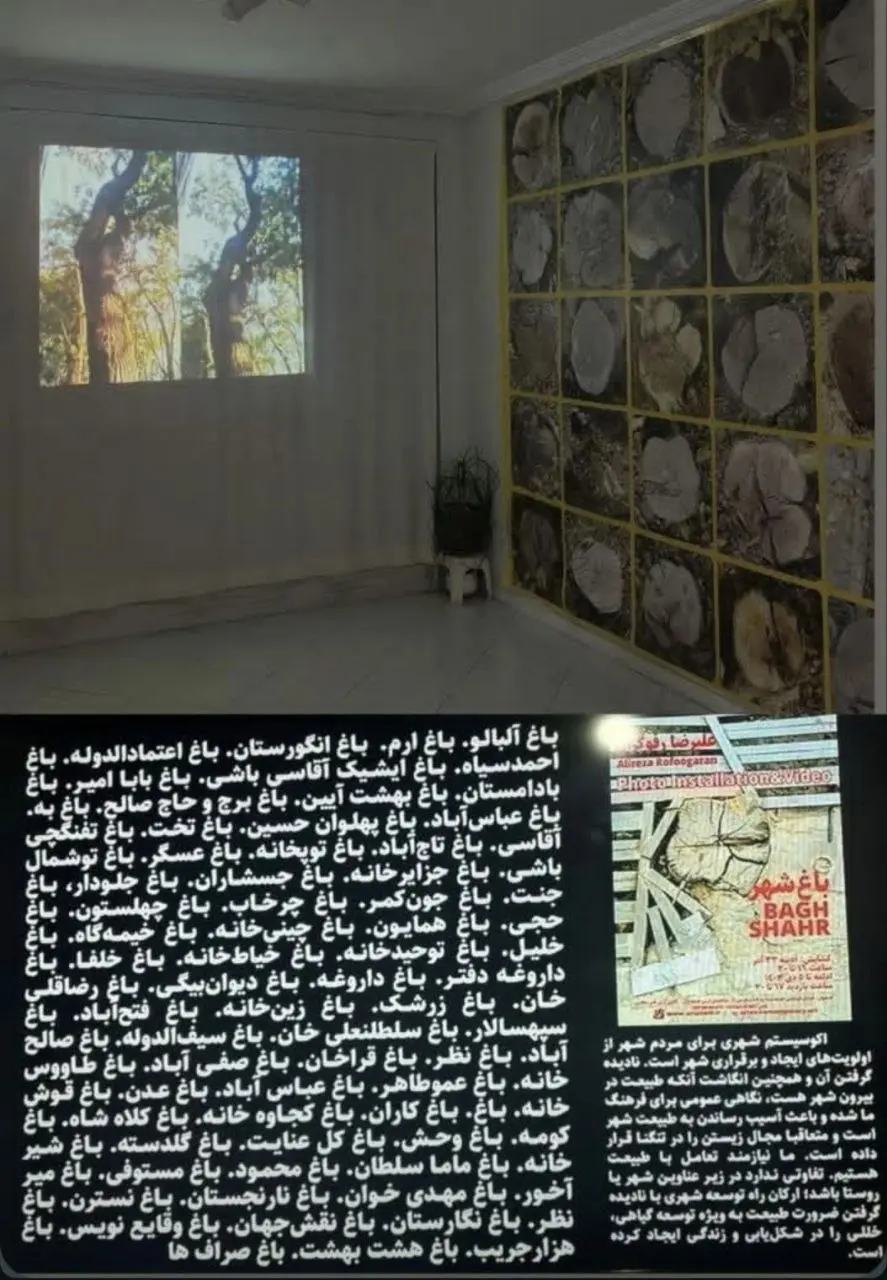 باغ آلبالو. باغ ارم. باغ انگورستان. باغ اعتمادالدوله. باغ
احمدسیاه. باغ ایشیک آقاسی باشی. باغ بابا امیر. باغ
بادامستان. باغ بهشت آیین. باغ برج و حاج صالح. باغ به.
باغ عباس‌آباد. باغ پهلوان حسین. باغ تخت. باغ تفنگچی
آقاسی. باغ تاج‌آباد. باغ توپخانه. باغ عسگر. باغ توشمال
باشی. باغ جزایرخانه. باغ جسشاران. باغ جلودار، باغ
جنت. باغ جون‌کمر. باغ چرخاب. باغ چهلستون. باغ
حجی. باغ همایون. باغ چینی‌خانه. باغ خیمه‌گاه. باغ
خلیل. باغ توحیدخانه. باغ خیاط‌خانه. باغ خلفا. باغ
داروغه دفتر. باغ داروغه. باغ دیوان‌بیگی. باغ رضاقلی
خان. باغ زرشک. باغ زین‌خانه. باغ فتح‌آباد. باغ
سپهسالار. باغ سلطلنعلی خان. باغ سیف‌الدوله. باغ صالح
آباد. باغ نظر. باغ قراخان. باغ صفی آباد. باغ طاووس
خانه. باغ عموطاهر. باغ عباس آباد. باغ عدن. باغ قوش
خانه. باغ. باغ کاران. باغ کجاوه خانه. باغ کلاه شاه. باغ
کومه. باغ وحش. باغ کل عنایت. باغ گلدسته. باغ شیر
خانه. باغ ماما سلطان. باغ محمود. باغ مستوفی. باغ میر
آخور. باغ مهدی خوان. باغ نارنجستان. باغ نسترن. باغ
نظر. باغ نگارستان. باغ نقش‌جهان. باغ وقایع نویس. باغ
هزارجریب. باغ هشت بهشت. باغ صراف ها
علیرضا
Alireza Rofoogaran
Photo Installation&Video
باغ شهر
BAGH
SHAHR
گشایش: آدینه ۲۳ آذر
ساعت ۱۶ تا ۲۰
ادامه تا ۵ دی ۱۴۰۳
ساعت بازدید ۱۷ تا ۲۰
اکوسیستم شهری برای مردم شهر از
اولویت‌های ایجاد و برقراری شهر است. نادیده
گرفتن آن و همچنین انگاشت آنکه طبیعت در
بیرون شهر هست، نگاهی عمومی برای فرهنگ
ما شده و باعث آسیب رساندن به طبیعت شهر
است و متعاقبا مجال زیستن را در تنگنا قرار
داده است. ما نیازمند تعامل با طبیعت
هستیم. تفاوتی ندارد در زیر عناوین شهر یا
روستا باشد؛ ارکان راه توسعه شهری با نادیده
گرفتن ضرورت طبیعت به ویژه توسعه گیاهی،
خللی را در شکل‌یابی و زندگی ایجاد کرده
است.